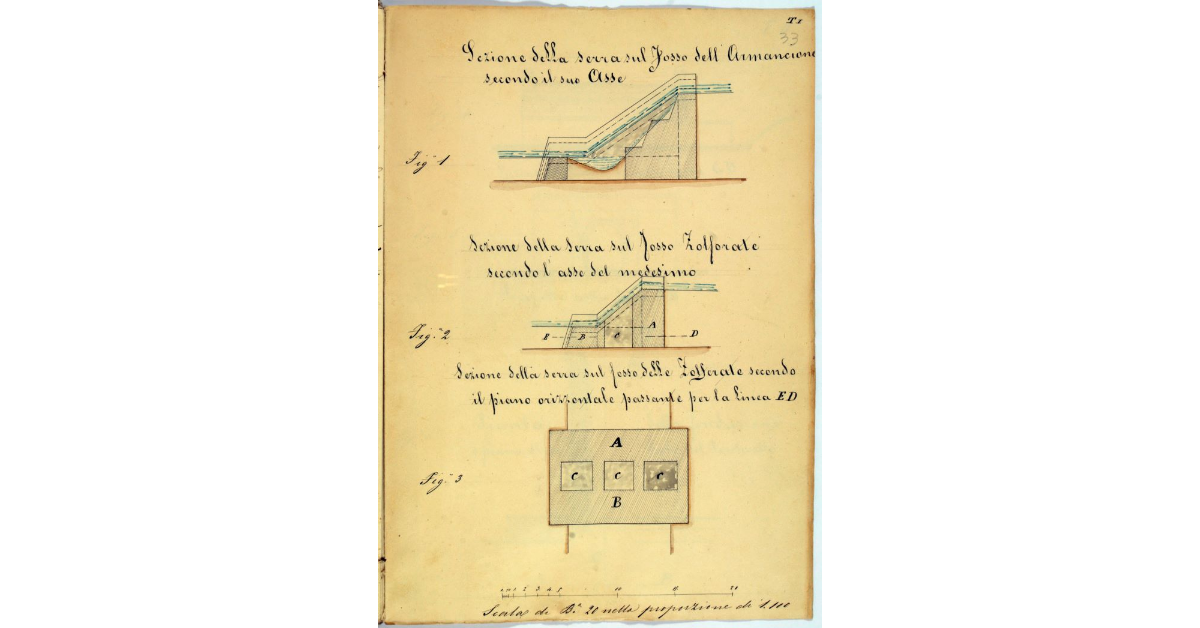 T 1
33
Sezione della serra sul Fosso dell'Armancione
secondo il suo Asse
Fig.ª 1
Sezione della Serra sul Fosso Zolforate
secondo l'asse del medesimo
Fig.ª 2
E B C A D
Sezione della serra sul fosso delle Zolforate secondo
il piano orizzontale passante per la Linea ED
A
Fig.ª 3
C C C
B
1 2 3 4 5 10 15 20
Scala di B.ª 20 nella proporzione di 1.100